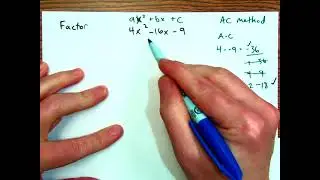 Factor
ax² + bx + c
4x² - 16x - 9
AC method
A·C
4·-9 = -36
1 -36
4 -9
2 -18 ✓